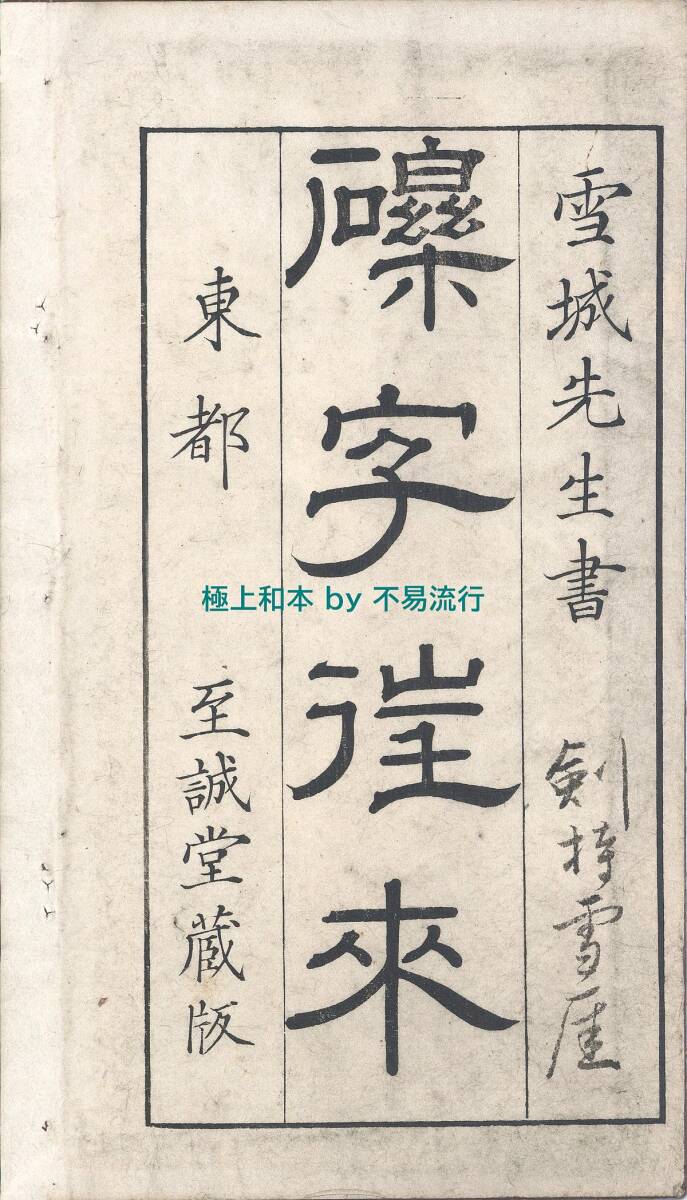 雪城先生書 剣持雪厓
礫字往來
東都 至誠堂蔵版
極上和本 by 不易流行